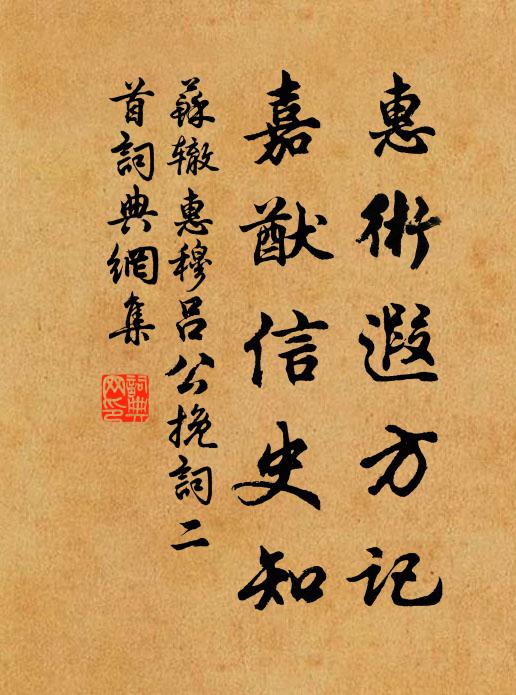 惠術遐方記
嘉猷信史知
蘇辙惠穆呂公挽詞二
首詞典網集
詞典
网印